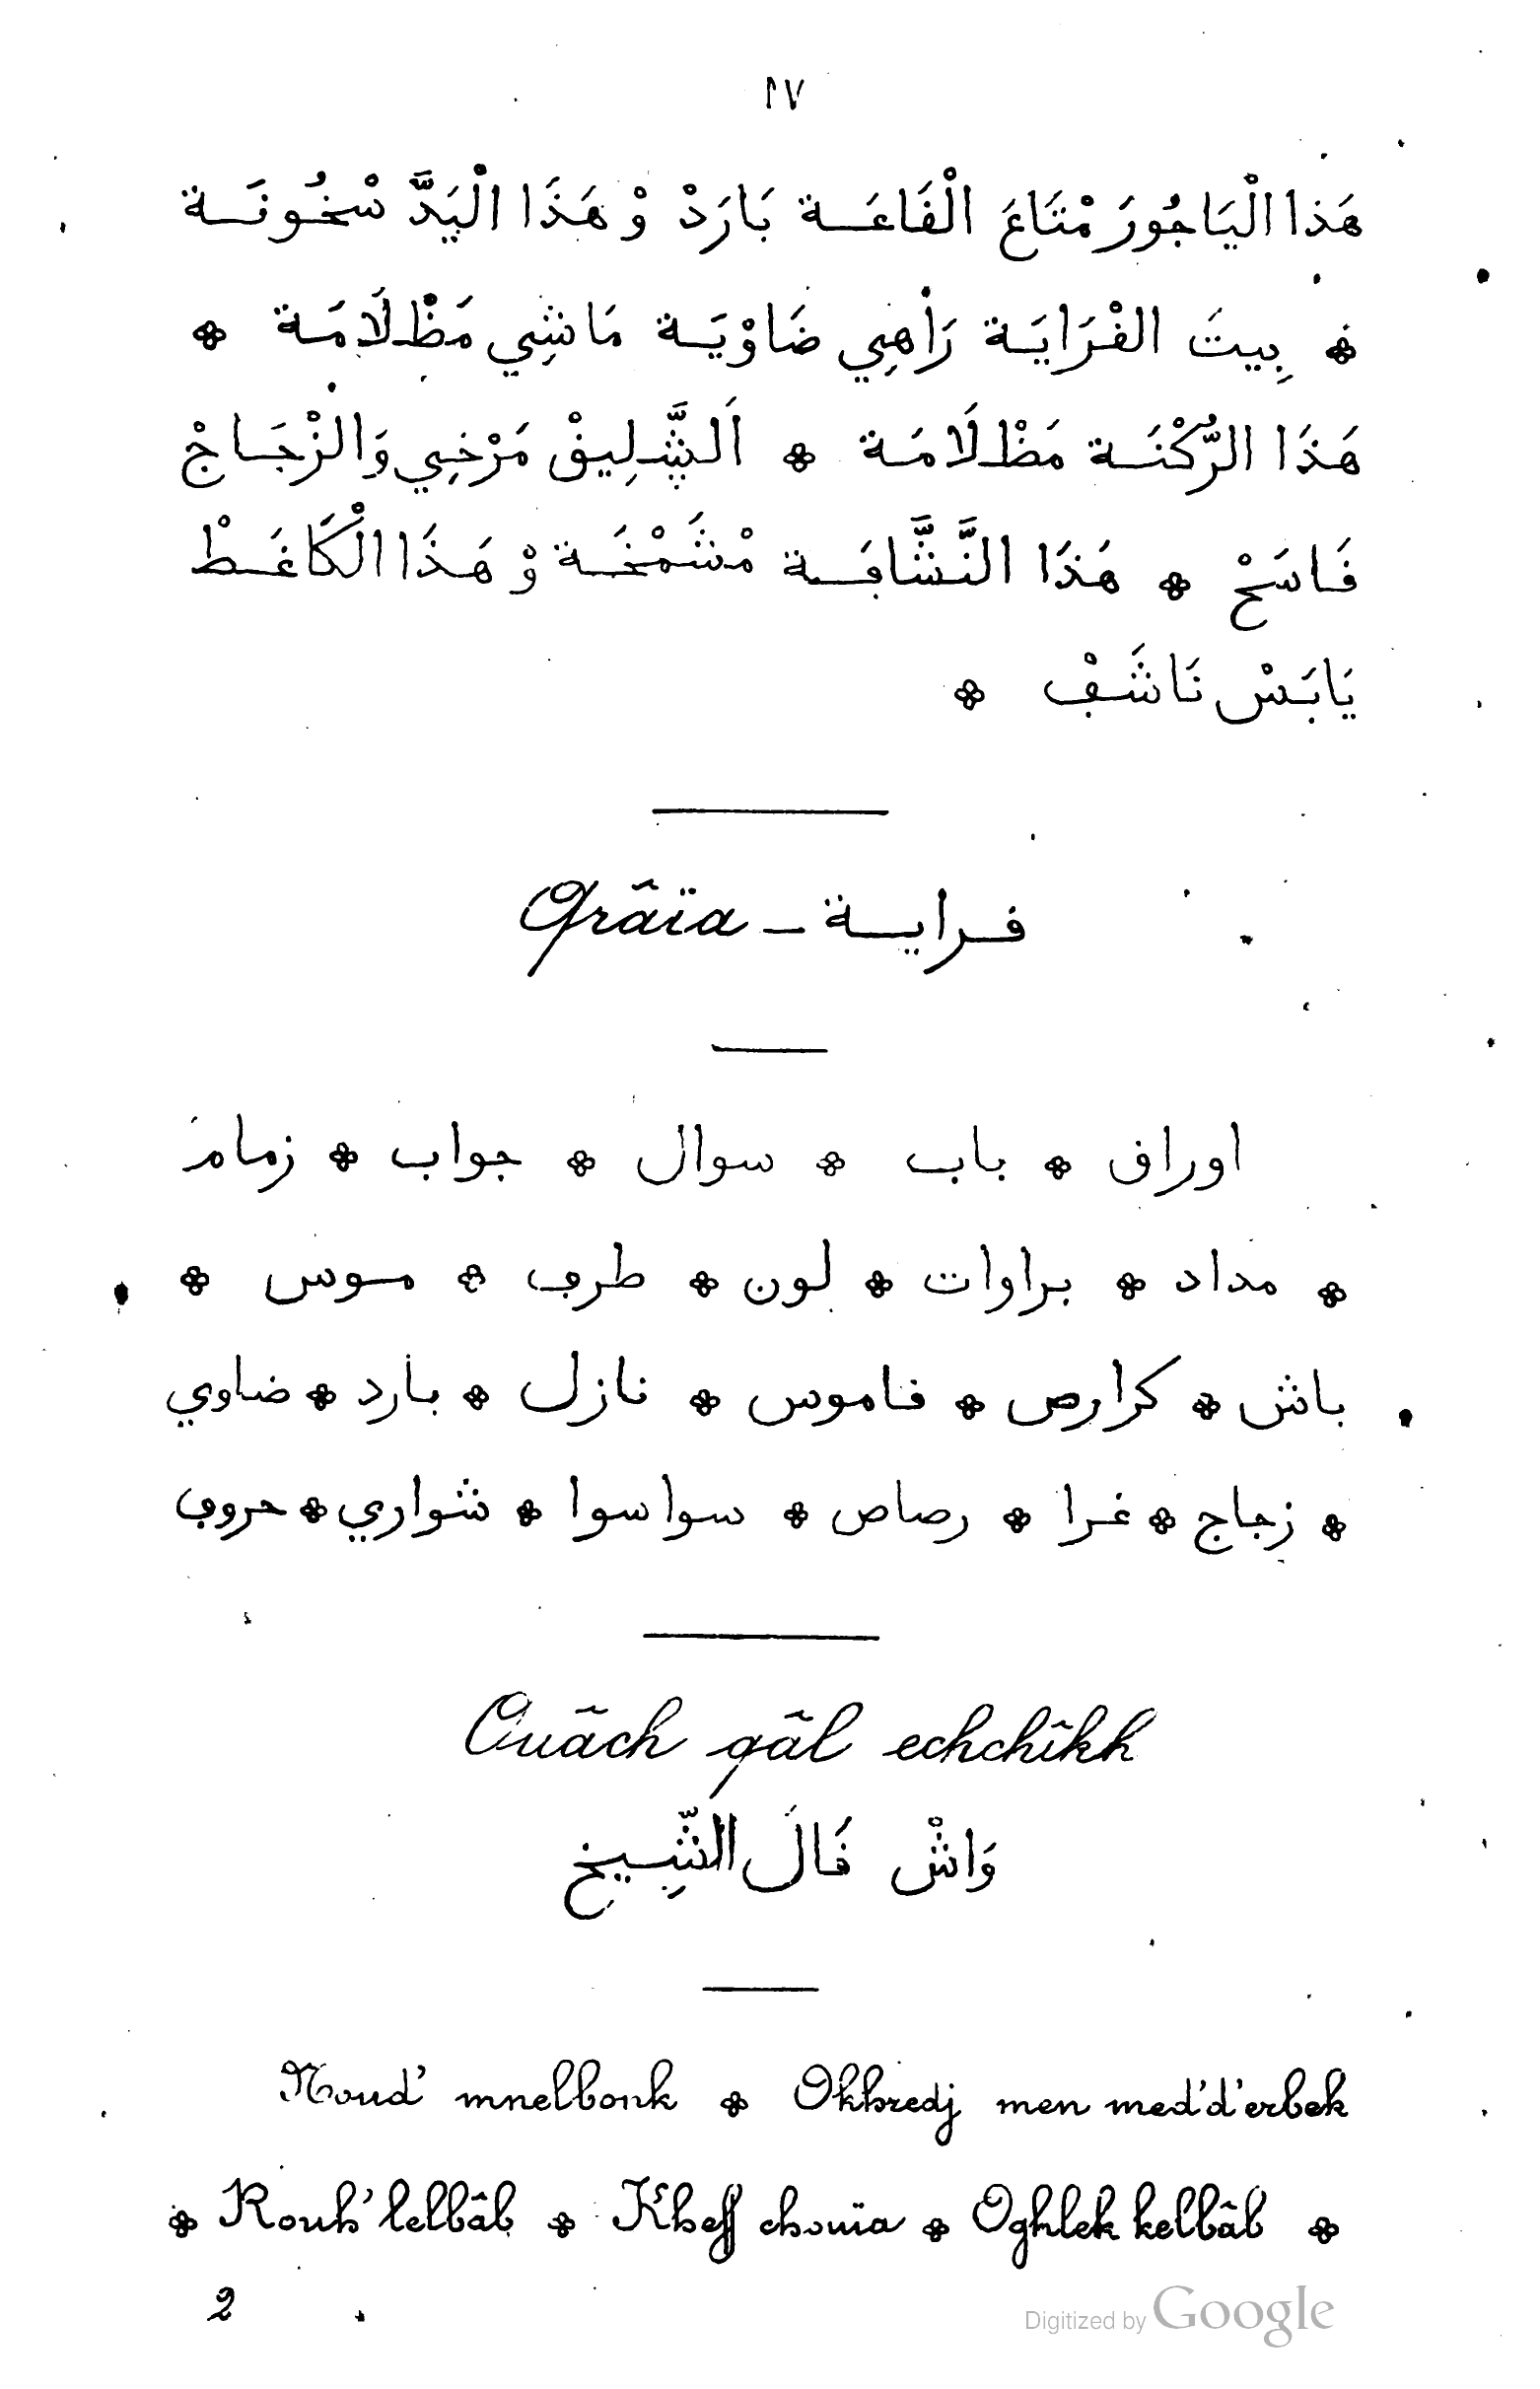 ١٧
هَذا الْيَاجُورَ مْتَاعَ الْقَاعَة بَارَدْ وْ هَذَا الْيَدَّ سْخُونَة
* بِيتَ القْرَايَة رَاهِي ضَاوْيَة مَاشِي مَظْلَامَة *
هَذَا الرُّكْنَة مَظْلَامَة * اَلشَّلِيقْ مَرْخِي وَالزْجَاجْ
قَاسَحْ * هَذَا النَّشَّافَة مْشَمْخَة وْ هَذَا الْكَاغَطْ
يَابَسْ نَاشَفْ *
قراية - Qrâïa
اوراق * باب * سوال * جواب * زمام
* مداد * براوات * لون * طرف * موس *
باش * كرارص * قاموس * نازل * بارد * ضاوي
* زجاج * غرا * رصاص * سواسوا * شواري * حروف
Ouâch qâl echchîkh
وَاشْ قَالَ الشِّيخ
Noud' mnelbonk * Okhredj men med'd'erbek
* Rouh' lelbâb * Kheff chouïa * Oghlek kelbâb *
2
Digitized by Google